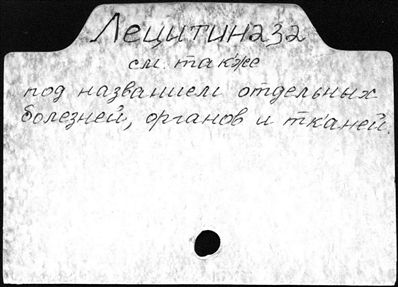 Лецитиназа
см. также
под названием отдельных
болезней, органов и тканей.